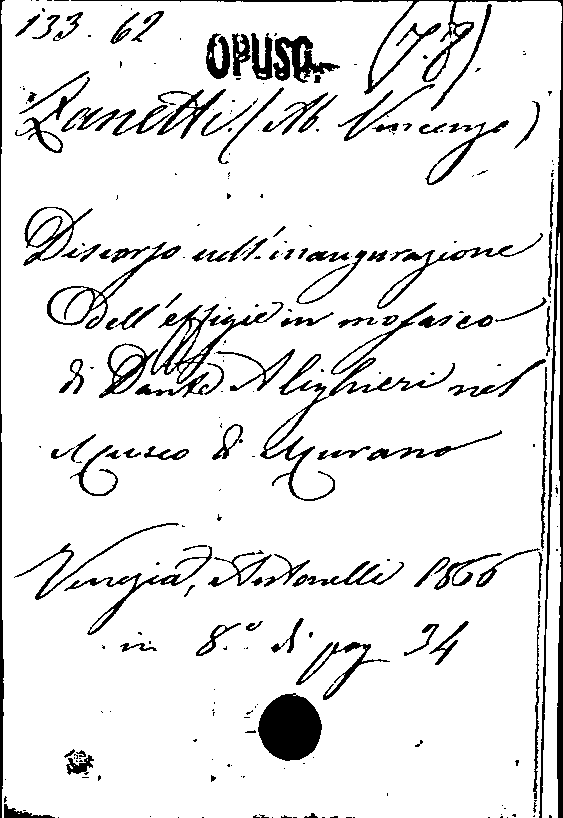 133. 62
OPUSC.
(7.8).
Zanetti. (Ab. Vincenzo)
Discorso nell'inaugurazione
dell'effigie in mosaico
di Dante Alighieri nel
Museo di Murano
Venezia, Antonelli 1866
in 8.º di pag 34